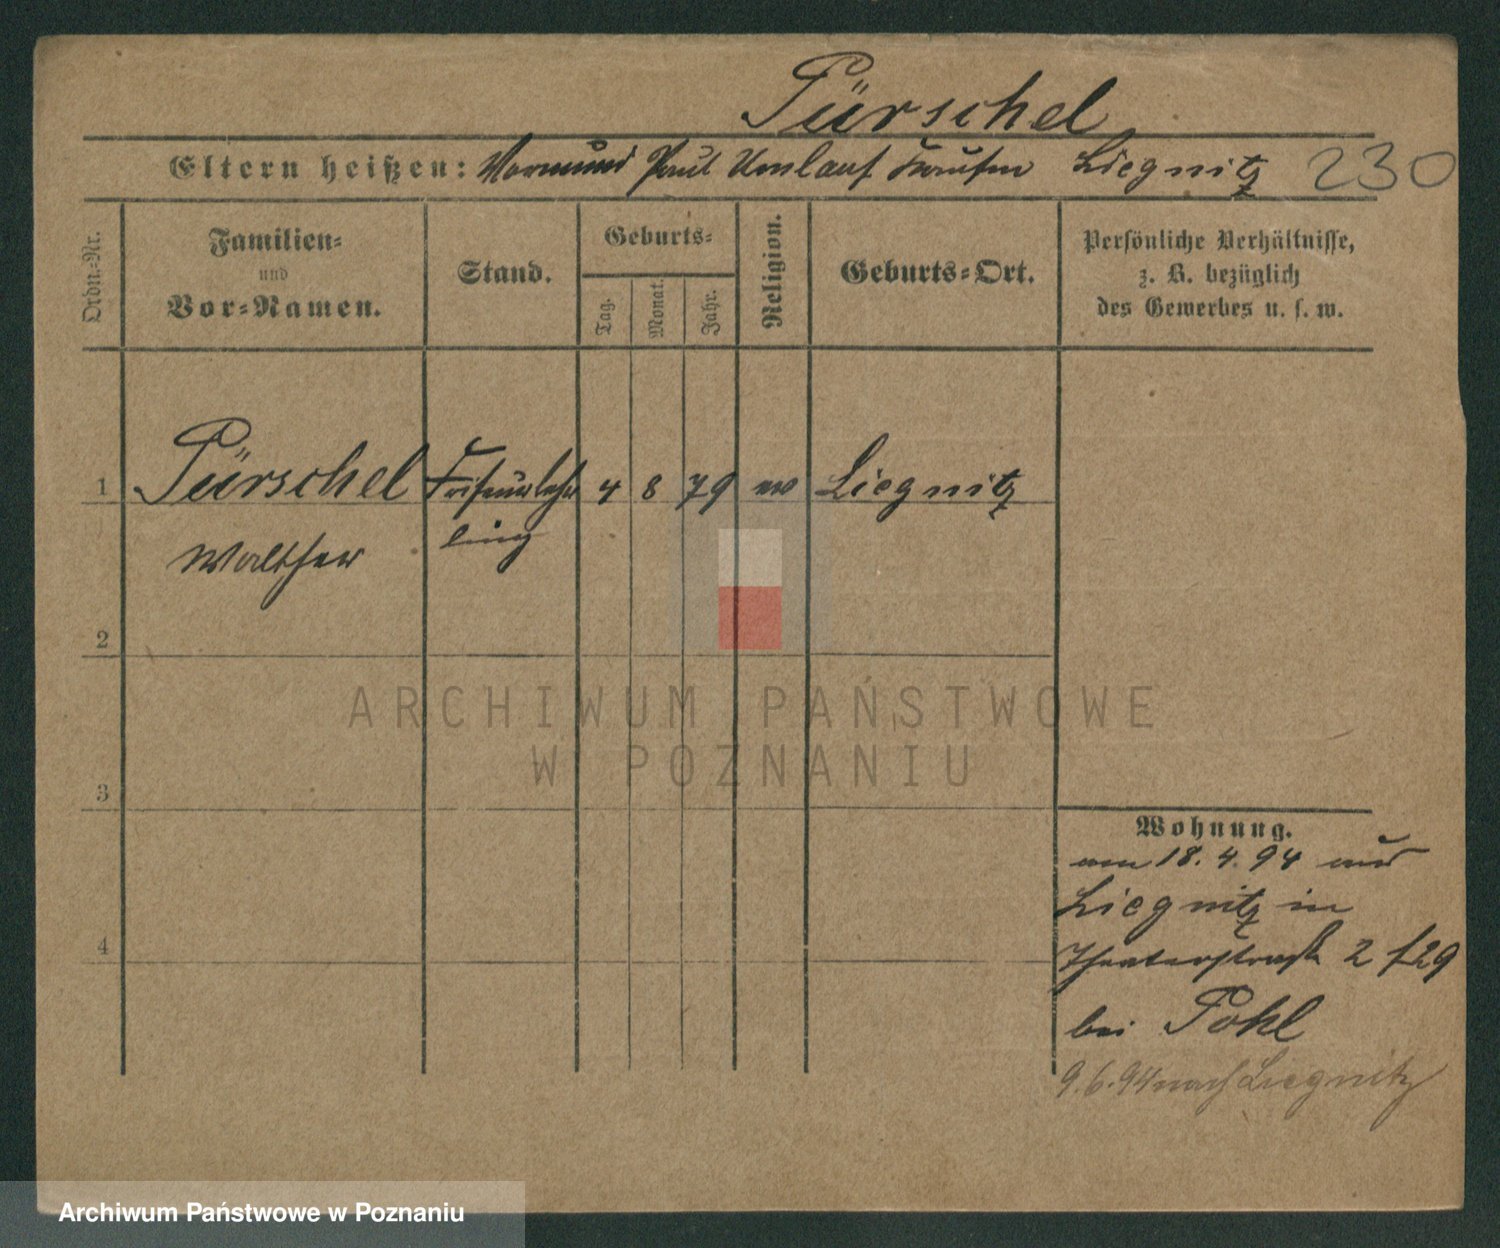 Pürschel
Eltern heißen: Vormund Paul Umlauf Kaufm Liegnitz 230
Ordn.-Nr.
Familien-
und
Vor-Namen.
Stand.
Geburts-
Tag.
Monat.
Jahr.
Religion.
Geburts-Ort.
Persönliche Verhältnisse,
z. B. bezüglich
des Gewerbes u. s. w.
1 Pürschel Friseurlehr 4 8 79 ev Liegnitz
ling
Walther
2
3
4
Wohnung.
am 18. 4. 94 aus
Liegnitz in
Theaterstraße 2 f 29
bei Pohl
9. 6. 94 nach Liegnitz
ARCHIWUM PAŃSTWOWE
W POZNANIU
Archiwum Państwowe w Poznaniu